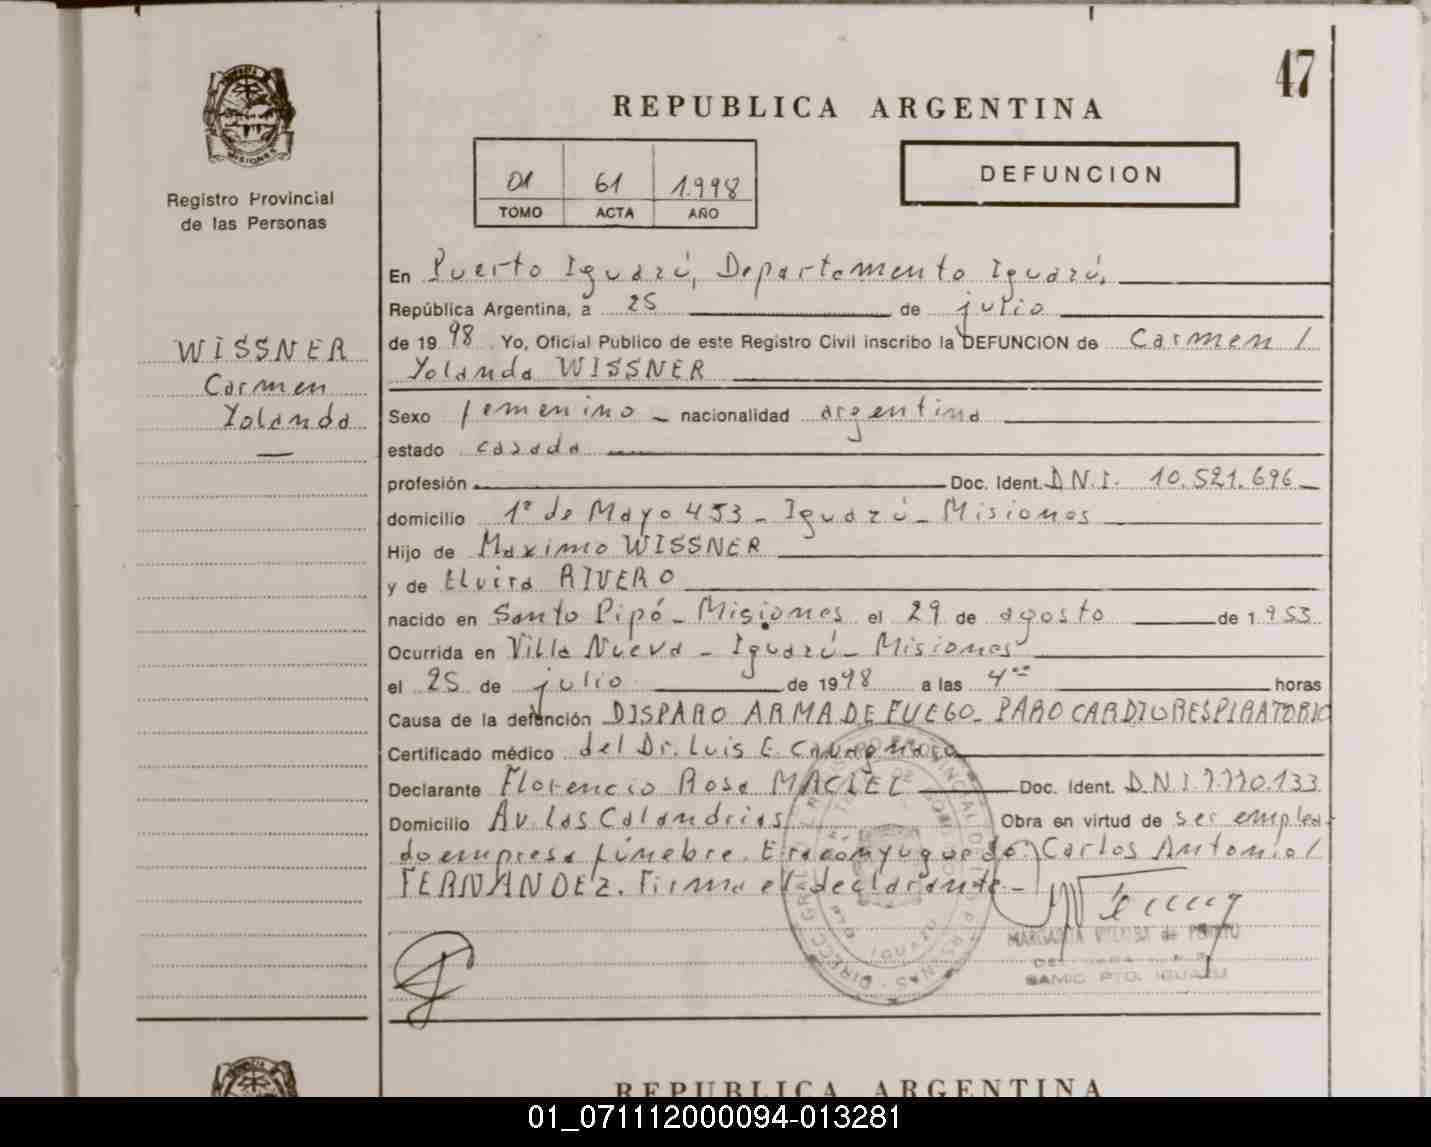 47
REPUBLICA ARGENTINA
MISIONES
Registro Provincial
de las Personas
01 61 1.998
TOMO ACTA AÑO
DEFUNCION
WISSNER
Carmen
Yolanda
En Puerto Iguazú, Departamento Iguazú,
República Argentina, a 25 de julio
de 19 98 . Yo, Oficial Público de este Registro Civil inscribo la DEFUNCION de Carmen /
Yolanda WISSNER
Sexo femenino - nacionalidad argentina
estado casada
profesión Doc. Ident. D.N.I. 10.521.696
domicilio 1° de Mayo 453 - Iguazú - Misiones
Hijo de Maximo WISSNER
y de Elvira RIVERO
nacido en Santo Pipó - Misiones el 29 de agosto de 1.953
Ocurrida en Villa Nueva - Iguazú - Misiones
el 25 de julio de 1998 a las 4 horas
Causa de la defunción DISPARO ARMA DE FUEGO - PARO CARDIORESPIRATORIO
Certificado médico del Dr. Luis E.
Declarante Florencio Rosa MACIEL Doc. Ident. D.N.I. 7.770.133
Domicilio Av. Las Calandrias Obra en virtud de ser emplea-
do empresa fúnebre. Era conyugue de: Carlos Antonio /
FERNANDEZ. Firma el declarante -
MARGARITA de
SAMIC PTO. IGUAZU
REPUBLICA ARGENTINA
01_071112000094-013281